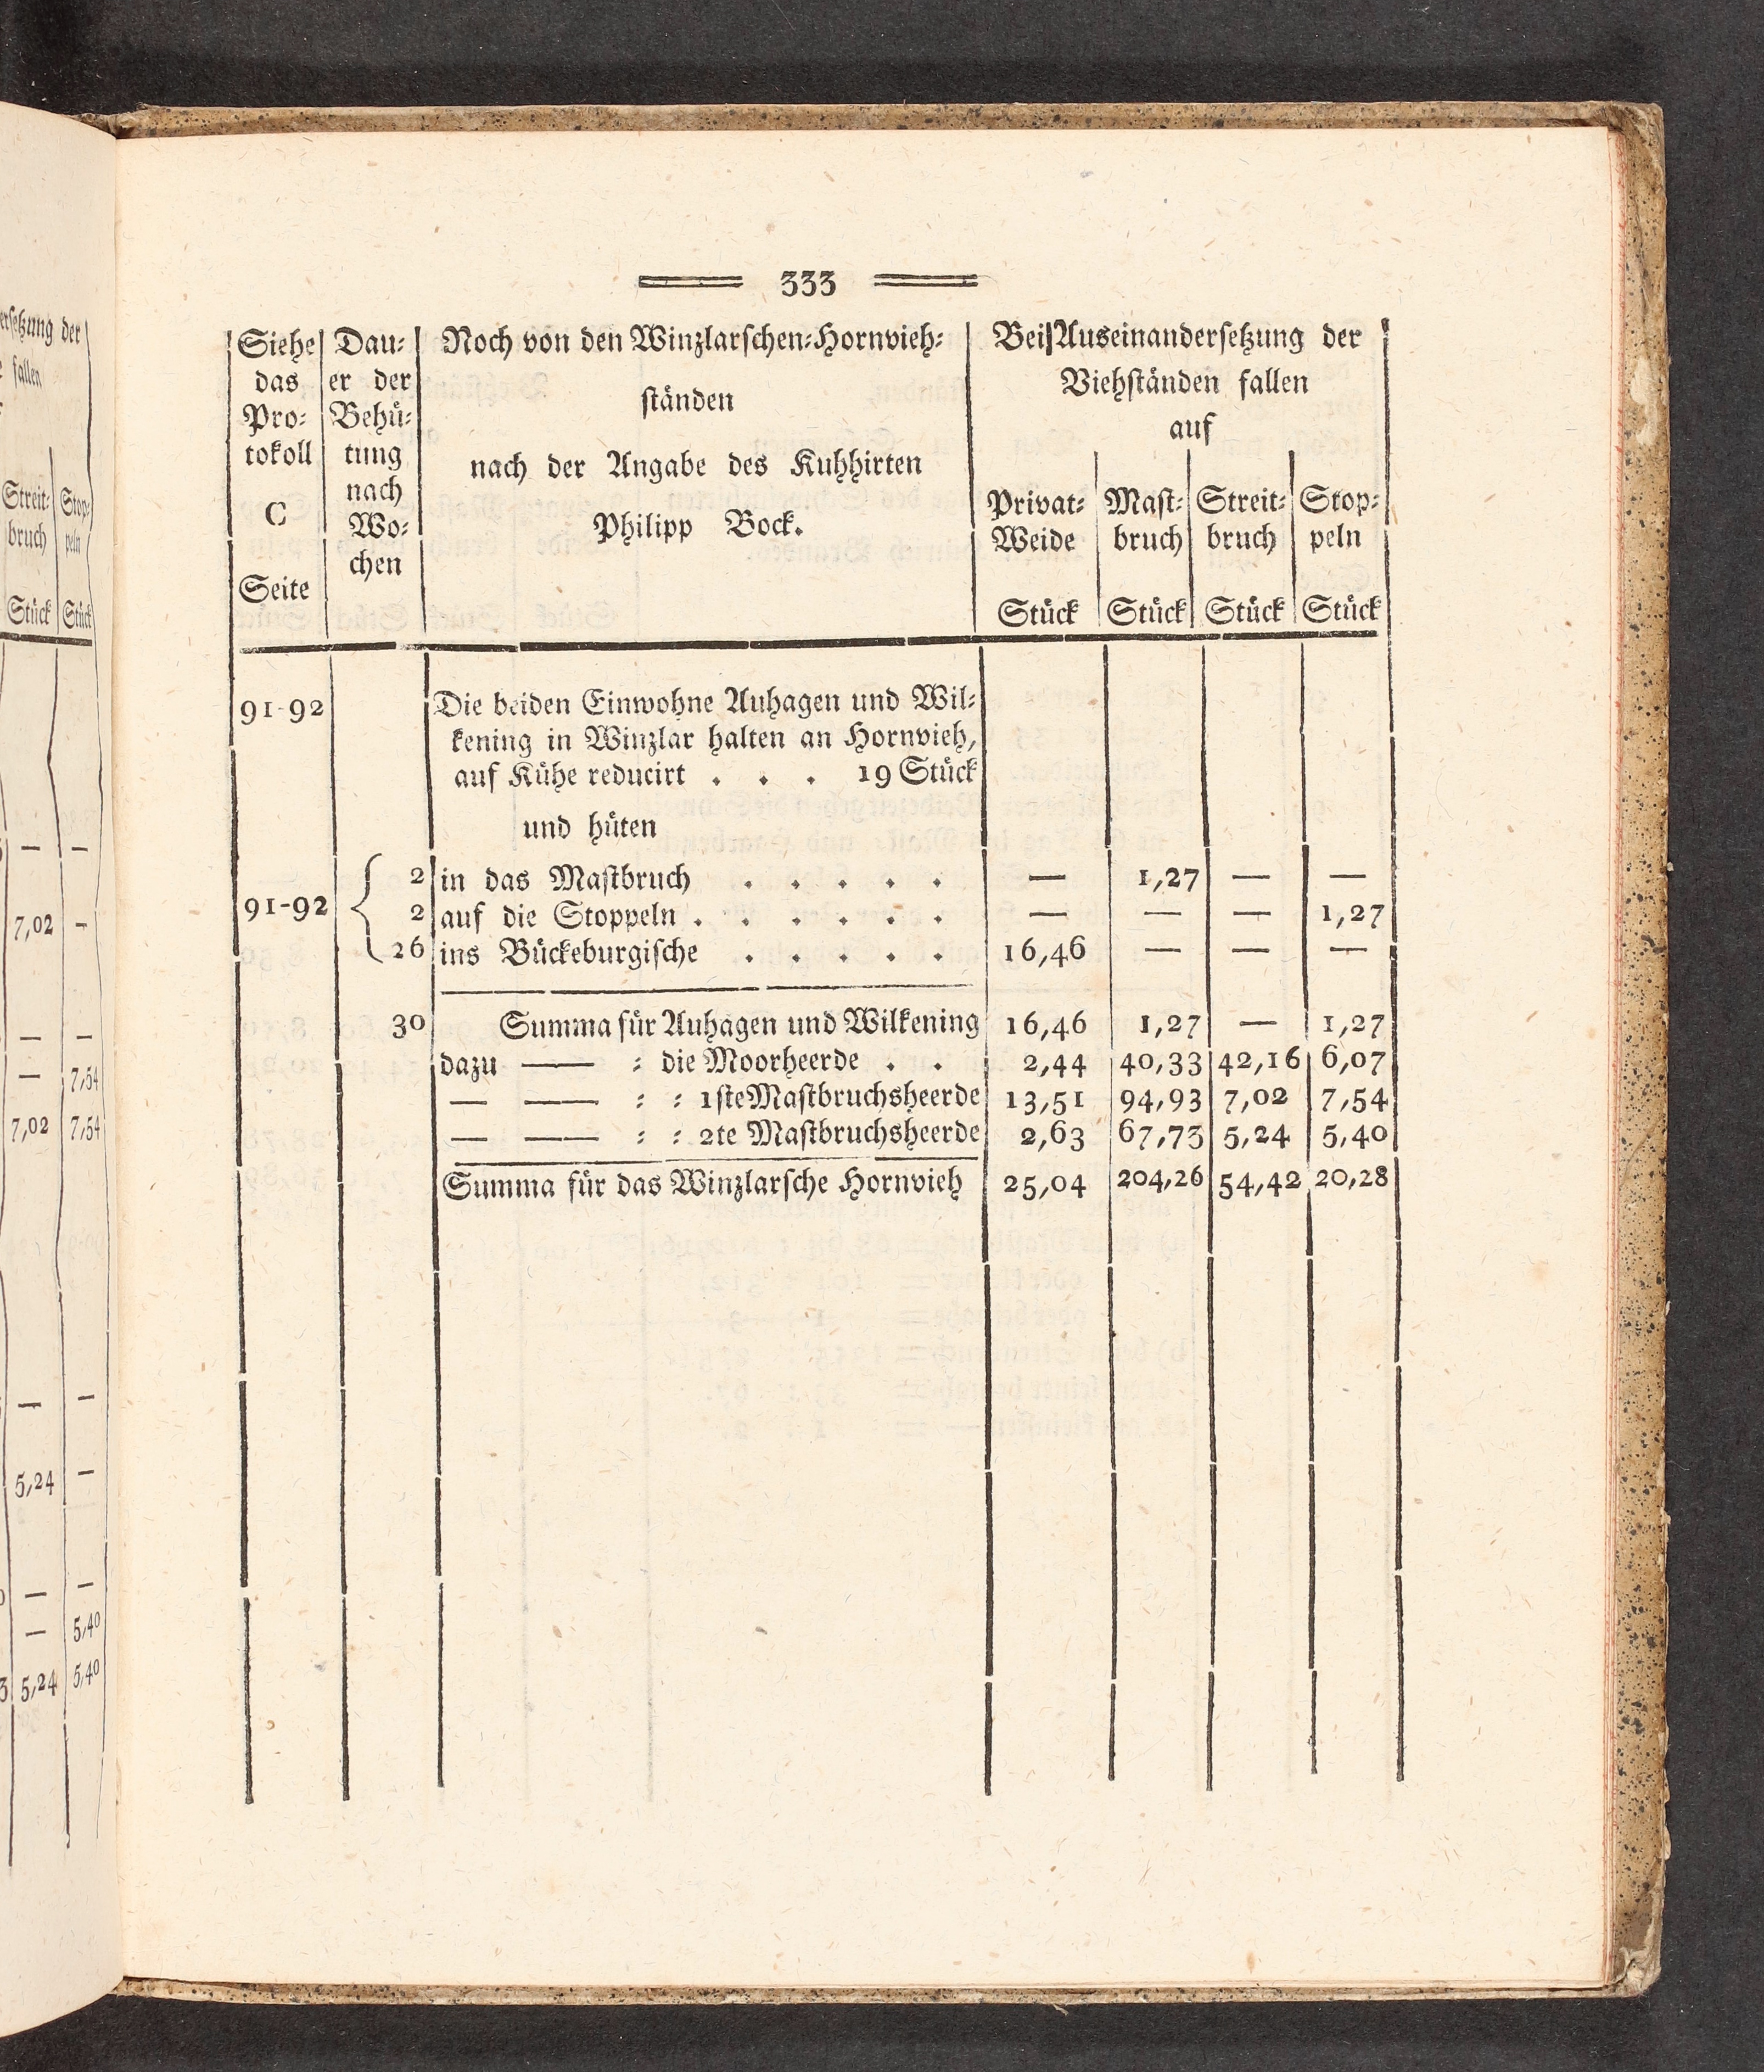 333
Siehe das Protokoll C Seite | Dauer der Behütung nach Wochen | Noch von den Winzlarschen-Hornvieh- | Bei Auseinandersetzung der
ständen | Viehständen fallen
nach der Angabe des Kuhhirten | auf
Philipp Bock. | Privat-Weide Stück | Mast-bruch Stück | Streit-bruch Stück | Stop-peln Stück
91-92 Die beiden Einwohne Auhagen und Wil-
kening in Winzlar halten an Hornvieh,
auf Kühe reducirt . . . 19 Stück
und hüten
2 in das Mastbruch . . . . . — 1,27 — —
91-92 { 2 auf die Stoppeln . . . . . . — — — 1,27
26 ins Bückeburgische . . . . . 16,46 — — —
30 Summa für Auhagen und Wilkening 16,46 1,27 — 1,27
dazu —— = die Moorheerde . . 2,44 40,33 42,16 6,07
— —— = = 1ste Mastbruchsheerde 13,51 94,93 7,02 7,54
— —— = = 2te Mastbruchsheerde 2,63 67,73 5,24 5,40
Summa für das Winzlarsche Hornvieh 25,04 204,26 54,42 20,28
der
fallen
Streit- Stop-
bruch peln
Stück Stück
— —
7,02 —
— —
— 7,54
7,02 7,54
— —
5,24 —
— —
— 5,40
5,24 5,40